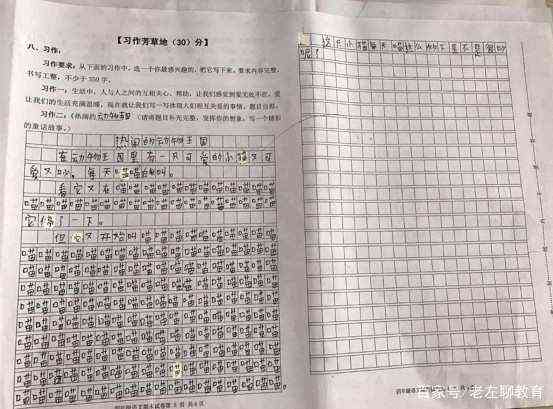 【习作芳草地（30）分】
八、习作。
习作要求：从下面的习作中，选一个你最感兴趣的，把它写下来。要求内容完整，
书写工整，不少于 350 字。
习作一：生活中，人与人之间的互相关心、帮助，让我们感受到爱无处不在。爱
让我们的生活充满温暖。现在就让我们写一写体现人们相互关爱的事情。题目自拟。
习作二：《热闹的动物》（请将题目补充完整，发挥你的想象，写一个精彩
的童话故事。）
热闹的动物王国
在动物王国里有一只可爱的小猫又可
爱又 每天喵喵地叫。
看它又在喵喵喵喵喵喵喵喵喵喵喵喵
喵喵喵喵喵喵喵喵喵喵喵喵喵喵喵喵喵喵
它停了一下。
但它又开始叫喵喵喵喵喵喵喵喵喵喵
喵喵喵喵喵喵喵喵喵喵喵喵喵喵喵喵喵喵
喵喵喵喵喵喵喵喵喵喵喵喵喵喵喵喵喵喵
喵喵喵喵喵喵喵喵喵喵喵喵喵喵喵喵喵喵
喵喵喵喵喵喵喵喵喵喵喵喵喵喵喵喵喵喵
喵喵喵喵喵喵喵喵喵喵喵喵喵喵喵喵喵喵
喵喵喵喵喵喵喵喵喵喵喵喵喵喵喵喵喵喵
喵喵喵喵喵喵喵喵喵喵喵喵喵喵喵喵喵喵
喵喵喵喵喵喵喵喵喵喵喵喵喵喵喵喵喵喵
四年级语文期末试卷第 5 页 共 6 页
这只小猫每天喵这么 是不是
呢？
四年级语文期末
百家号/老左聊教育